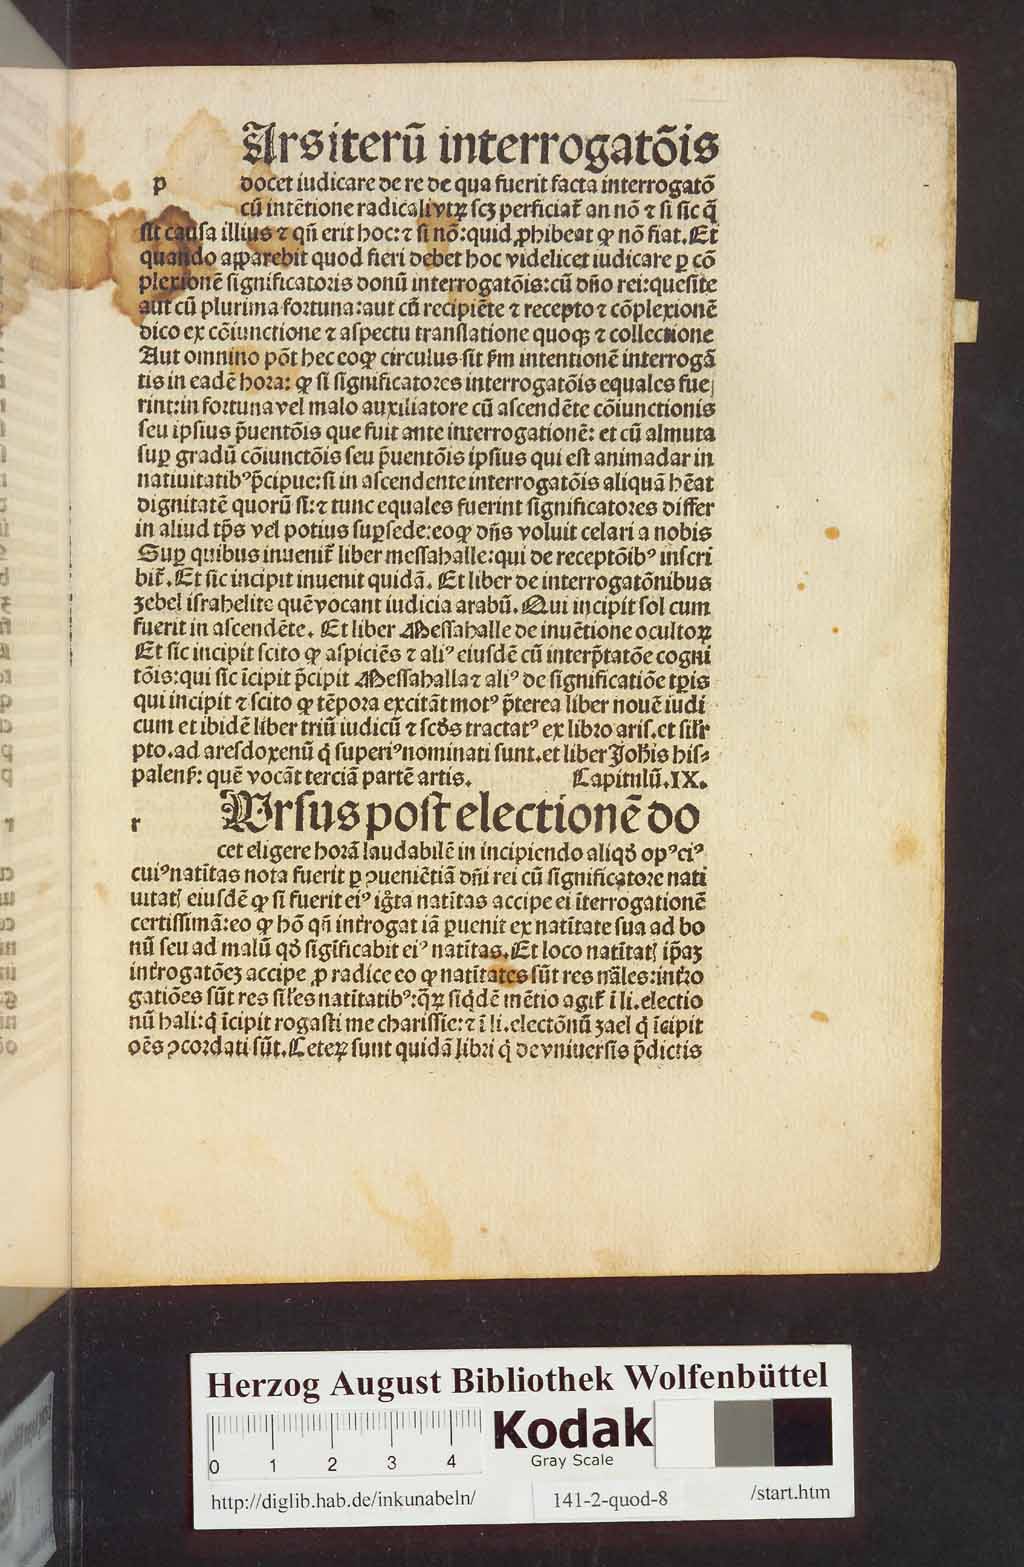 p Ars iterū interrogatōis
docet iudicare de re de qua fuerit facta interrogatō
cū intētione radicali vtꝝ scꝫ perficiat̄ an nō ⁊ si sic q̄
sit causa illius ⁊ qn̄ erit hoc: ⁊ si nō: quid ꝓhibeat ꝙ nō fiat. Et
quando apparebit quod fieri debet hoc videlicet iudicare ꝑ cō
plexionē significatoris donū interrogatōis: cū dn̄o rei: quesite
aut cū plurima fortuna: aut cū recipiēte ⁊ recepto ⁊ cōplexionē
dico ex cōiunctione ⁊ aspectu translatione quoqꝫ ⁊ collectione
Aut omnino pōt hec eoꝙ circulus sit ẜm intentionē interrogā
tis in eadē hora: ꝙ si significatores interrogatōis equales fue
rint: in fortuna vel malo auxiliatore cū ascendēte cōiunctionis
seu ipsius p̄uentōis que fuit ante interrogationē: et cū almuta
suꝑ gradū cōiunctōis seu p̄uentōis ipsius qui est animadar in
natiuitatibꝰ p̄cipue: si in ascendente interrogatōis aliquā hēat
dignitatē quorū si: ⁊ tunc equales fuerint significatores differ
in aliud tp̄s vel potius suꝑsede: eoꝙ dn̄s voluit celari a nobis
Suꝑ quibus inuenit̄ liber messahalle: qui de receptōibꝰ inscri
bit̄. Et sic incipit inuenit quidā. Et liber de interrogatōnibus
zebel israhelite quē vocant iudicia arabū. Qui incipit sol cum
fuerit in ascendēte. Et liber Messahalle de inuētione ocultoꝝ
Et sic incipit scito ꝙ aspiciēs ⁊ aliꝰ eiusdē cū interp̄tatōe cogni
tōis: qui sic īcipit p̄cipit Messahalla ⁊ aliꝰ de significatiōe tꝑis
qui incipit ⁊ scito ꝙ tēpora excitāt motꝰ p̄terea liber nouē iudi
cum et ibidē liber triū iudicū ⁊ scd̄s tractatꝰ ex libro aris. et
pto. ad aresdoxenū q̄ superiꝰ nominati sunt. et liber Joh̄is his-
palenẜ: quē vocāt terciā partē artis. Capitulū. IX.
r Vrsus post electionē do
cet eligere horā laudabilē in incipiendo aliqd̄ opꝰ ciꝰ
cuiꝰ natītas nota fuerit ꝑ ꝯueniētiā dn̄i rei cū significatore nati
uitatꝭ eiusdē ꝙ si fuerit eiꝰ igta natītas accipe ei īterrogationē
certissimā: eo ꝙ hō qn̄ int̄rogat iā ꝑuenit ex natītate sua ad bo
nū seu ad malū qd̄ sigīficabit eiꝰ natītas. Et loco natītatꝭ ip̄aꝫ
int̄rogatōeꝫ accipe ꝓ radice eo ꝙ natītates sūt res nāles: int̄ro
gatiōes sūt res sil̄es natītatibꝰ: q̄ꝝ siqdē mētio agit̄ ī li. electio
nū hali: q̄ īcipit rogasti me charissie: ⁊ ī li. electōnū zael q̄ īcipit
oēs ꝯcordati sūt. Ceteꝝ sunt quidā libri q̄ de vniuersis p̄dictis
Herzog August Bibliothek Wolfenbüttel
0 1 2 3 4
Kodak
Gray Scale
http://diglib.hab.de/inkunabeln/ 141-2-quod-8 /start.htm